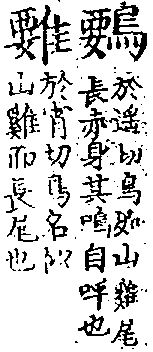 於遥切鳥如山雞尾
長赤身其鳴自呼也
於宵切鳥名似
山雞而長尾也